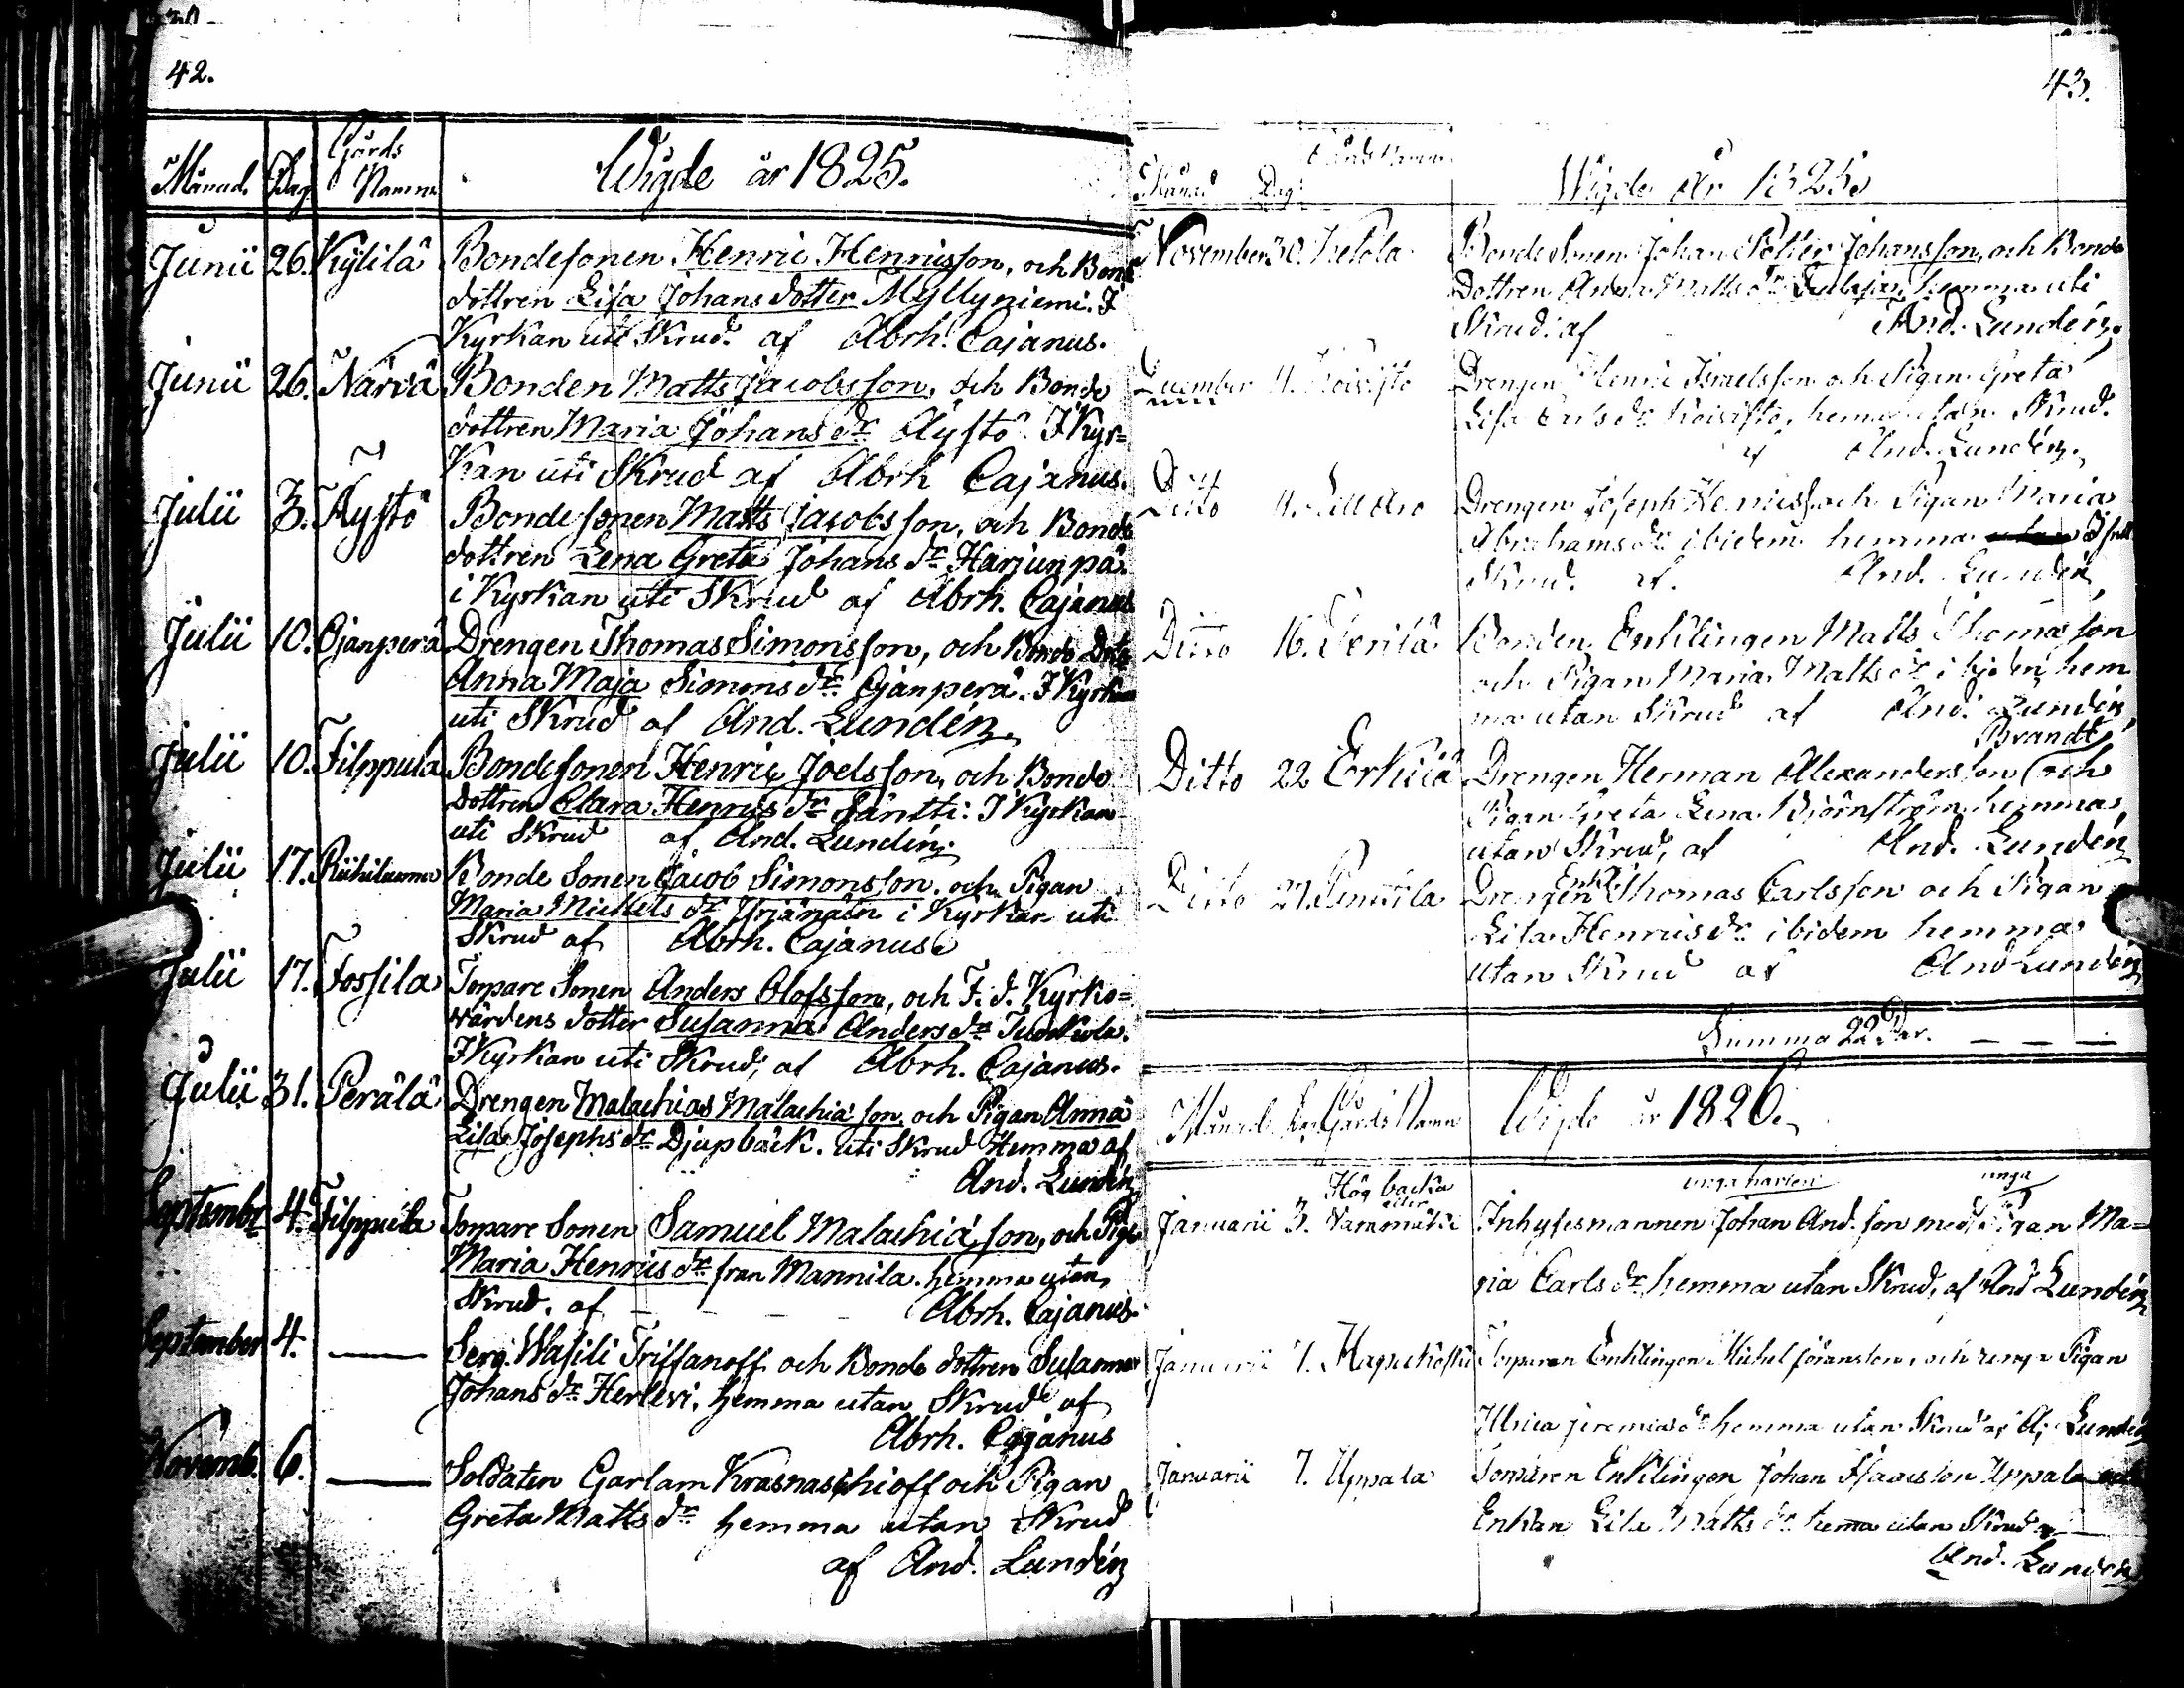 42.
Månad. Dag Gårds Namn Wigde år 1825.
Junii 26. Kylilä Bondesonen Henric Henricsson, och Bond
dottren Lisa Johans dotter Myllyniemi. I
Kyrkan uti Skrud af Abrh. Cajanus.
Junii 26. Närvä Bonden Matts Jacobsson, och Bonde
dottren Maria Johans dr Äystö. I Kyr=
kan uti Skrud af Abrh Cajanus.
Julii 3. Äystö Bondesonen Matts Jacobsson, och Bonde
dottren Lena Greta Johans dr Harjunpä.
i Kyrkan uti Skrud af Abrh. Cajanus
Julii 10. Ojanperä Drengen Thomas Simonsson, och Bonde Dott
Anna Maja Simons dr Ojanperä. I Kyrkan
uti Skrud af And. Lundén
Julii 10. Filppula Bondesonen Henric Joelsson, och Bonde
dottren Clara Henrics dr Säntti. I Kyrkan
uti Skrud af And. Lundén.
Julii 17. Riihiluoma Bonde Sonen Jacob Simonsson. och Pigan
Maria Michels dr Yrjänäin i Kyrkan uti
Skrud af Abrh. Cajanus
Julii 17. Fossila Torpare Sonen Anders Olofsson, och F. d. Kyrko=
värdens dotter Susanna Anders dr
I Kyrkan uti Skrud, af Abrh. Cajanus.
Julii 31. Perälä Drengen Malachias Malachiä son, och Pigan Anna
Lisa Josephs dr Djupbäck. uti Skrud Hemma af
And. Lundén
September 4. Filppula Torpare Sonen Samuel Malachiä son, och Piga
Maria Henrics dr från Mannila. hemma utan
Skrud. af Abrh. Cajanus
September 4. — Serg. Wasili Triffanoff och Bonde dottren Susanna
Johans dr Herlevi, hemma utan Skrud af
Abrh. Cajanus
Novemb. 6. — Soldaten Garlam och Pigan
Greta Matts dr hemma utan Skrud
af And. Lundén
43.
Månad Dag Gårds Namn Wigde År 1825
November 30. Ketola Bonde Sonen Johan Petter Johansson, och Bonde
Dottren Anna Matts dr hemma uti
Skrud. af And. Lundén
December 4. Koivisto Drengen Henric Israelsson och Pigan Greta
Lisa Carls dr Koivisto, hemma utan Skrud.
af And. Lundén.
Ditto 4. Drengen Joseph Henricss. och Pigan Maria
Abrahams dr ibidem hemma
Skrud. af. And. Lundén
Ditto 16. Penilä Bonden Enklingen Matts Thomasson
och Pigan Maria Matts dr ibidem hem
ma utan Skrud af And. Lundén
Brandt
Ditto 22 Erkilä Drengen Herman Alexandersson (och
Pigan Greta Lena Björnström hemma
utan Skrud, af And. Lundén
Ditto 27. Penttilä Drengen Enkl. Thomas Carlsson och Pigan
Lisa Henrics dr ibidem hemma
utan Skrud af And Lundén
Summa 22 Par. — — —
Månad Dag Gårds Namn Wigde år 1826.
Högbacka eller unga
Januarii 3. Vammäki Inhysesmannen Johan And. son med Pigan Ma=
ria Carls dr hemma utan Skrud, af And Lundén
Januarii 7. Hapukoski Torparen Enklingen Michel Göransson, och unga Pigan
Ulrica Jeremias dr hemma utan Skrud af A; Lundén
Januarii 7. Uppala Enklingen Johan Isaacsson Uppala och
Enkan Lisa Matts dr hema utan Skrud af
And. Lundén